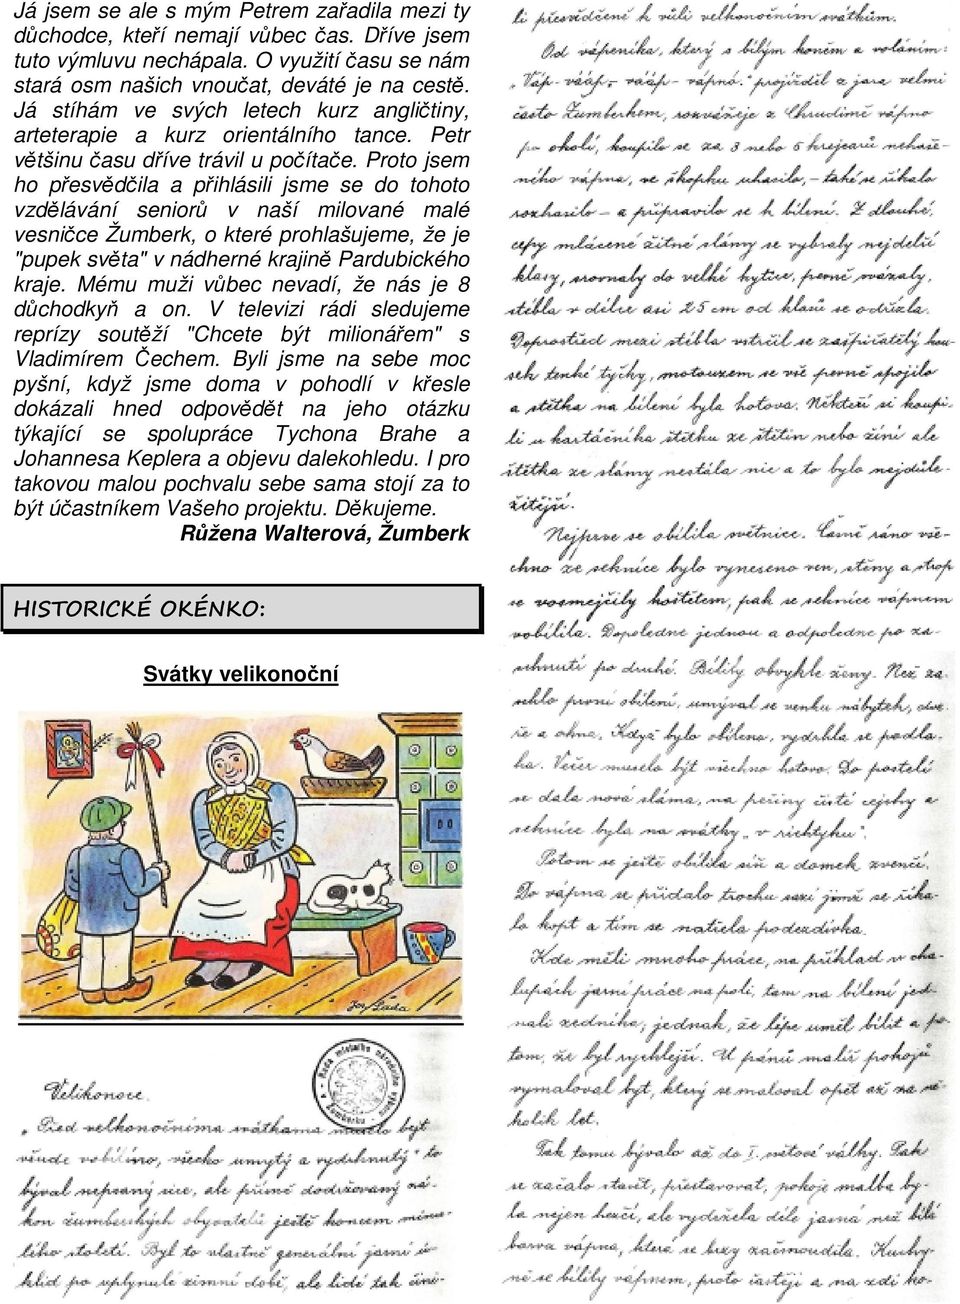 Já jsem se ale s mým Petrem zařadila mezi ty
důchodce, kteří nemají vůbec čas. Dříve jsem
tuto výmluvu nechápala. O využití času se nám
stará osm našich vnoučat, deváté je na cestě.
Já stíhám ve svých letech kurz angličtiny,
arteterapie a kurz orientálního tance. Petr
většinu času dříve trávil u počítače. Proto jsem
ho přesvědčila a přihlásili jsme se do tohoto
vzdělávání seniorů v naší milované malé
vesničce Žumberk, o které prohlašujeme, že je
"pupek světa" v nádherné krajině Pardubického
kraje. Mému muži vůbec nevadí, že nás je 8
důchodkyň a on. V televizi rádi sledujeme
reprízy soutěží "Chcete být milionářem" s
Vladimírem Čechem. Byli jsme na sebe moc
pyšní, když jsme doma v pohodlí v křesle
dokázali hned odpovědět na jeho otázku
týkající se spolupráce Tychona Brahe a
Johannesa Keplera a objevu dalekohledu. I pro
takovou malou pochvalu sebe sama stojí za to
být účastníkem Vašeho projektu. Děkujeme.
Růžena Walterová, Žumberk
HISTORICKÉ OKÉNKO:
Svátky velikonoční
Jos. Lada
Rada místního národního
v Žumberku
Velikonoce.
„Před velkonočníma svátkama muselo bejt
všude vobílíno, všecko umytý a vydrhnutý" to
býval nepsaný sice, ale přímě dodržovaný zá-
kon žumberských obyvatelů ještě koncem minu-
lého století. Byl to vlastně generální jarní ú-
klid po uplynulé zimní době, ale lidé tak čini-
li přesvědčeně k vůli velkonočním svátkům.
Od vápeníka, který s bílým koněm a voláním:
„Váp-vááp-vááp-vápnó." projížděl z jara velmi
často Žumberkem, rozvážeje z Chrudimě vápno
po okolí, koupilo se za 3 nebo 5 krejcarů nehaše-
ného vápna, ve škopku uhasilo,- také se říkalo
rozhasilo - a připravilo se k bílení. Z dlouhé,
cepy mlácené žitné slámy se vybraly nejdelší
klasy, srovnaly do velké kytice, pevně svázaly,
stébla v délce asi 25 cm od klasů se odřízla.
Doprostřed mezi stébla vstrčil se zašpičatělý kou-
sek tenké tyčky, motouzem se vše pevně spojilo
a štětka na bílení byla hotova. Někteří si koupi-
li u kartáčníka štětku ze štětin nebo žíní ale
štětka ze slámy nestála nic a to bylo nejdůle-
žitější.
Nejprve se obílila světnice. Časně ráno vše-
chno ze seknice bylo vyneseno ven, stěny a strop
se vosmejčily koštětem, pak se seknice vápnem
vobílila. Dopoledne jednou a odpoledne po za-
schnutí po druhé. Bílily obvykle ženy. Než za-
schlo první obílení, umýval se venku nábytek, dve-
ře a okna, Když bylo obíleno, vydrhla se podla-
ha. Večer muselo být všechno hotovo. Do postelí
se dala nová sláma, na peřiny čisté cejchy a
seknice byla na svátky „v richtyku".
Potom se ještě obílila síň a domek zvenčí.
Do vápna se přidalo trochu sazí jimž se říka-
lo kopt a tím se natřela podezdívka.
Kde měli mnoho práce, na příklad v cha-
lupách jarní práce na poli, tam na bílení jed-
nali zedníka; jednak, že lépe uměl bílit a po-
tom, že byl rychlejší. U pánů malíř pokojů
vymaloval byt, který se maloval opět až za ně-
kolik let.
Tak tomu bývalo až do I. světové války. Pak
se začalo stavět, přestavovat, pokoje malba by-
la nejen hezčí, ale vydržela déle jasná než bílá
barva vápna, která se brzy začmoudila. Kuchy-
ně se bílily vápnem, proto častěji a na zdi ko-